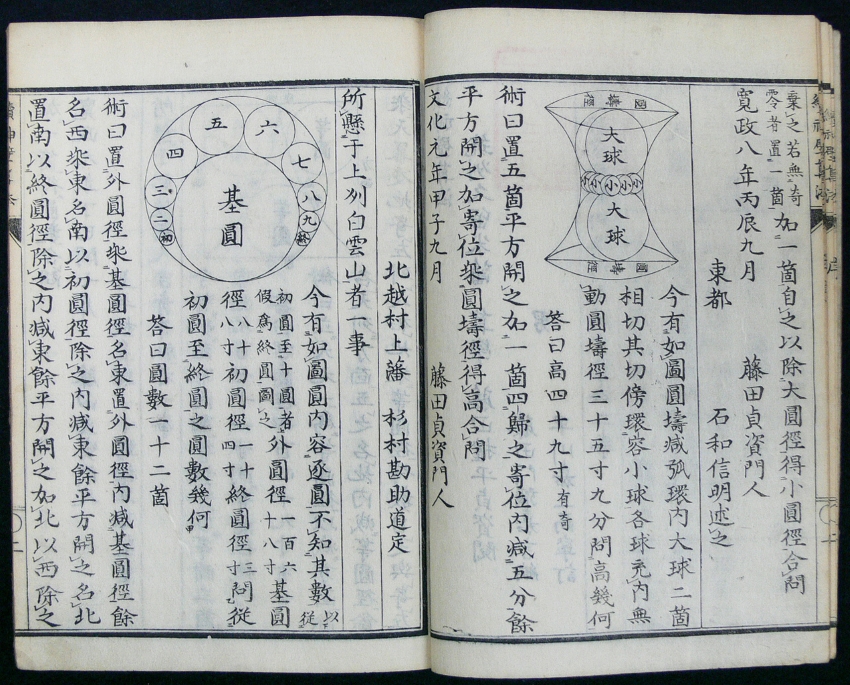 棄之若無奇
零者置一箇
加一箇自之以除大圓徑得小圓徑合問
寛政八年丙辰九月
藤田貞資門人
東都
石和信明述之
今有如圖圓壔減弧環内大球二箇
相切其切傍環容小球各球充内無
動圓壔徑三十五寸九分問高幾何
答曰高四十九寸有奇
術曰置五箇平方開之加一箇四歸之寄位内減五分餘
平方開之加寄位乘圓壔徑得高合問
文化元年甲子九月
藤田貞資門人
北越村上藩
杉村勘助道定
圓壔徑
大球
小小小小小
大球
圓壔徑
所懸于上州白雲山者一事
今有如圖圓内容逐圓不知其數以從
初圓至十圓者
假爲終圓圖之
外圓徑六百六十八寸基圓
徑八寸初圓徑一十四寸終圓徑三寸問從
初圓至終圓之圓數幾何
答曰圓數一十二箇
術曰置外圓徑乘基圓徑名東置外圓徑内減基圓徑餘
名西乘東名南以初圓徑除之内減東餘平方開之名北
置南以終圓徑除之内減東餘平方開之加北以西除之
基圓
初
二
三
四
五
六
七
八
九
終